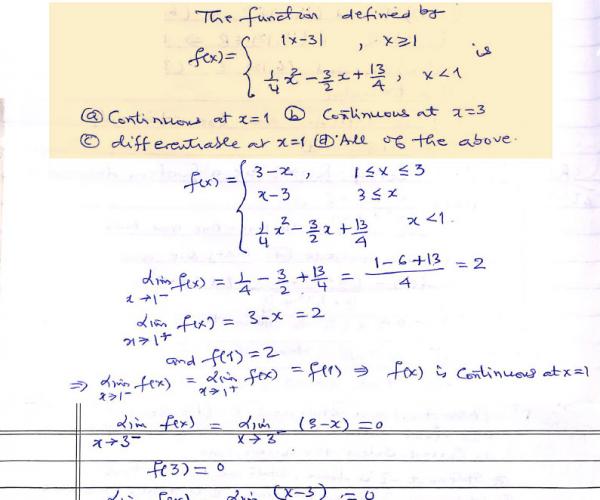 The function defined by
f(x) = { |x-3| , x ≥ 1
1/4 x² - 3/2 x + 13/4 , x < 1 is
ⓐ Continuous at x=1 ⓑ Continuous at x=3
ⓒ differentiable at x=1 ⓓ All of the above.
f(x) = { 3-x , 1 ≤ x ≤ 3
x-3 3 ≤ x
1/4 x² - 3/2 x + 13/4 x < 1.
Lim x→1⁻ f(x) = 1/4 - 3/2 + 13/4 = (1-6+13)/4 = 2
Lim x→1⁺ f(x) = 3-x = 2
and f(1) = 2
⇒ Lim x→1⁻ f(x) = Lim x→1⁺ f(x) = f(1) ⇒ f(x) is Continuous at x=1
Lim x→3⁻ f(x) = Lim x→3⁻ (3-x) = 0
f(3) = 0
Lim f(x) Lim (x-3) = 0